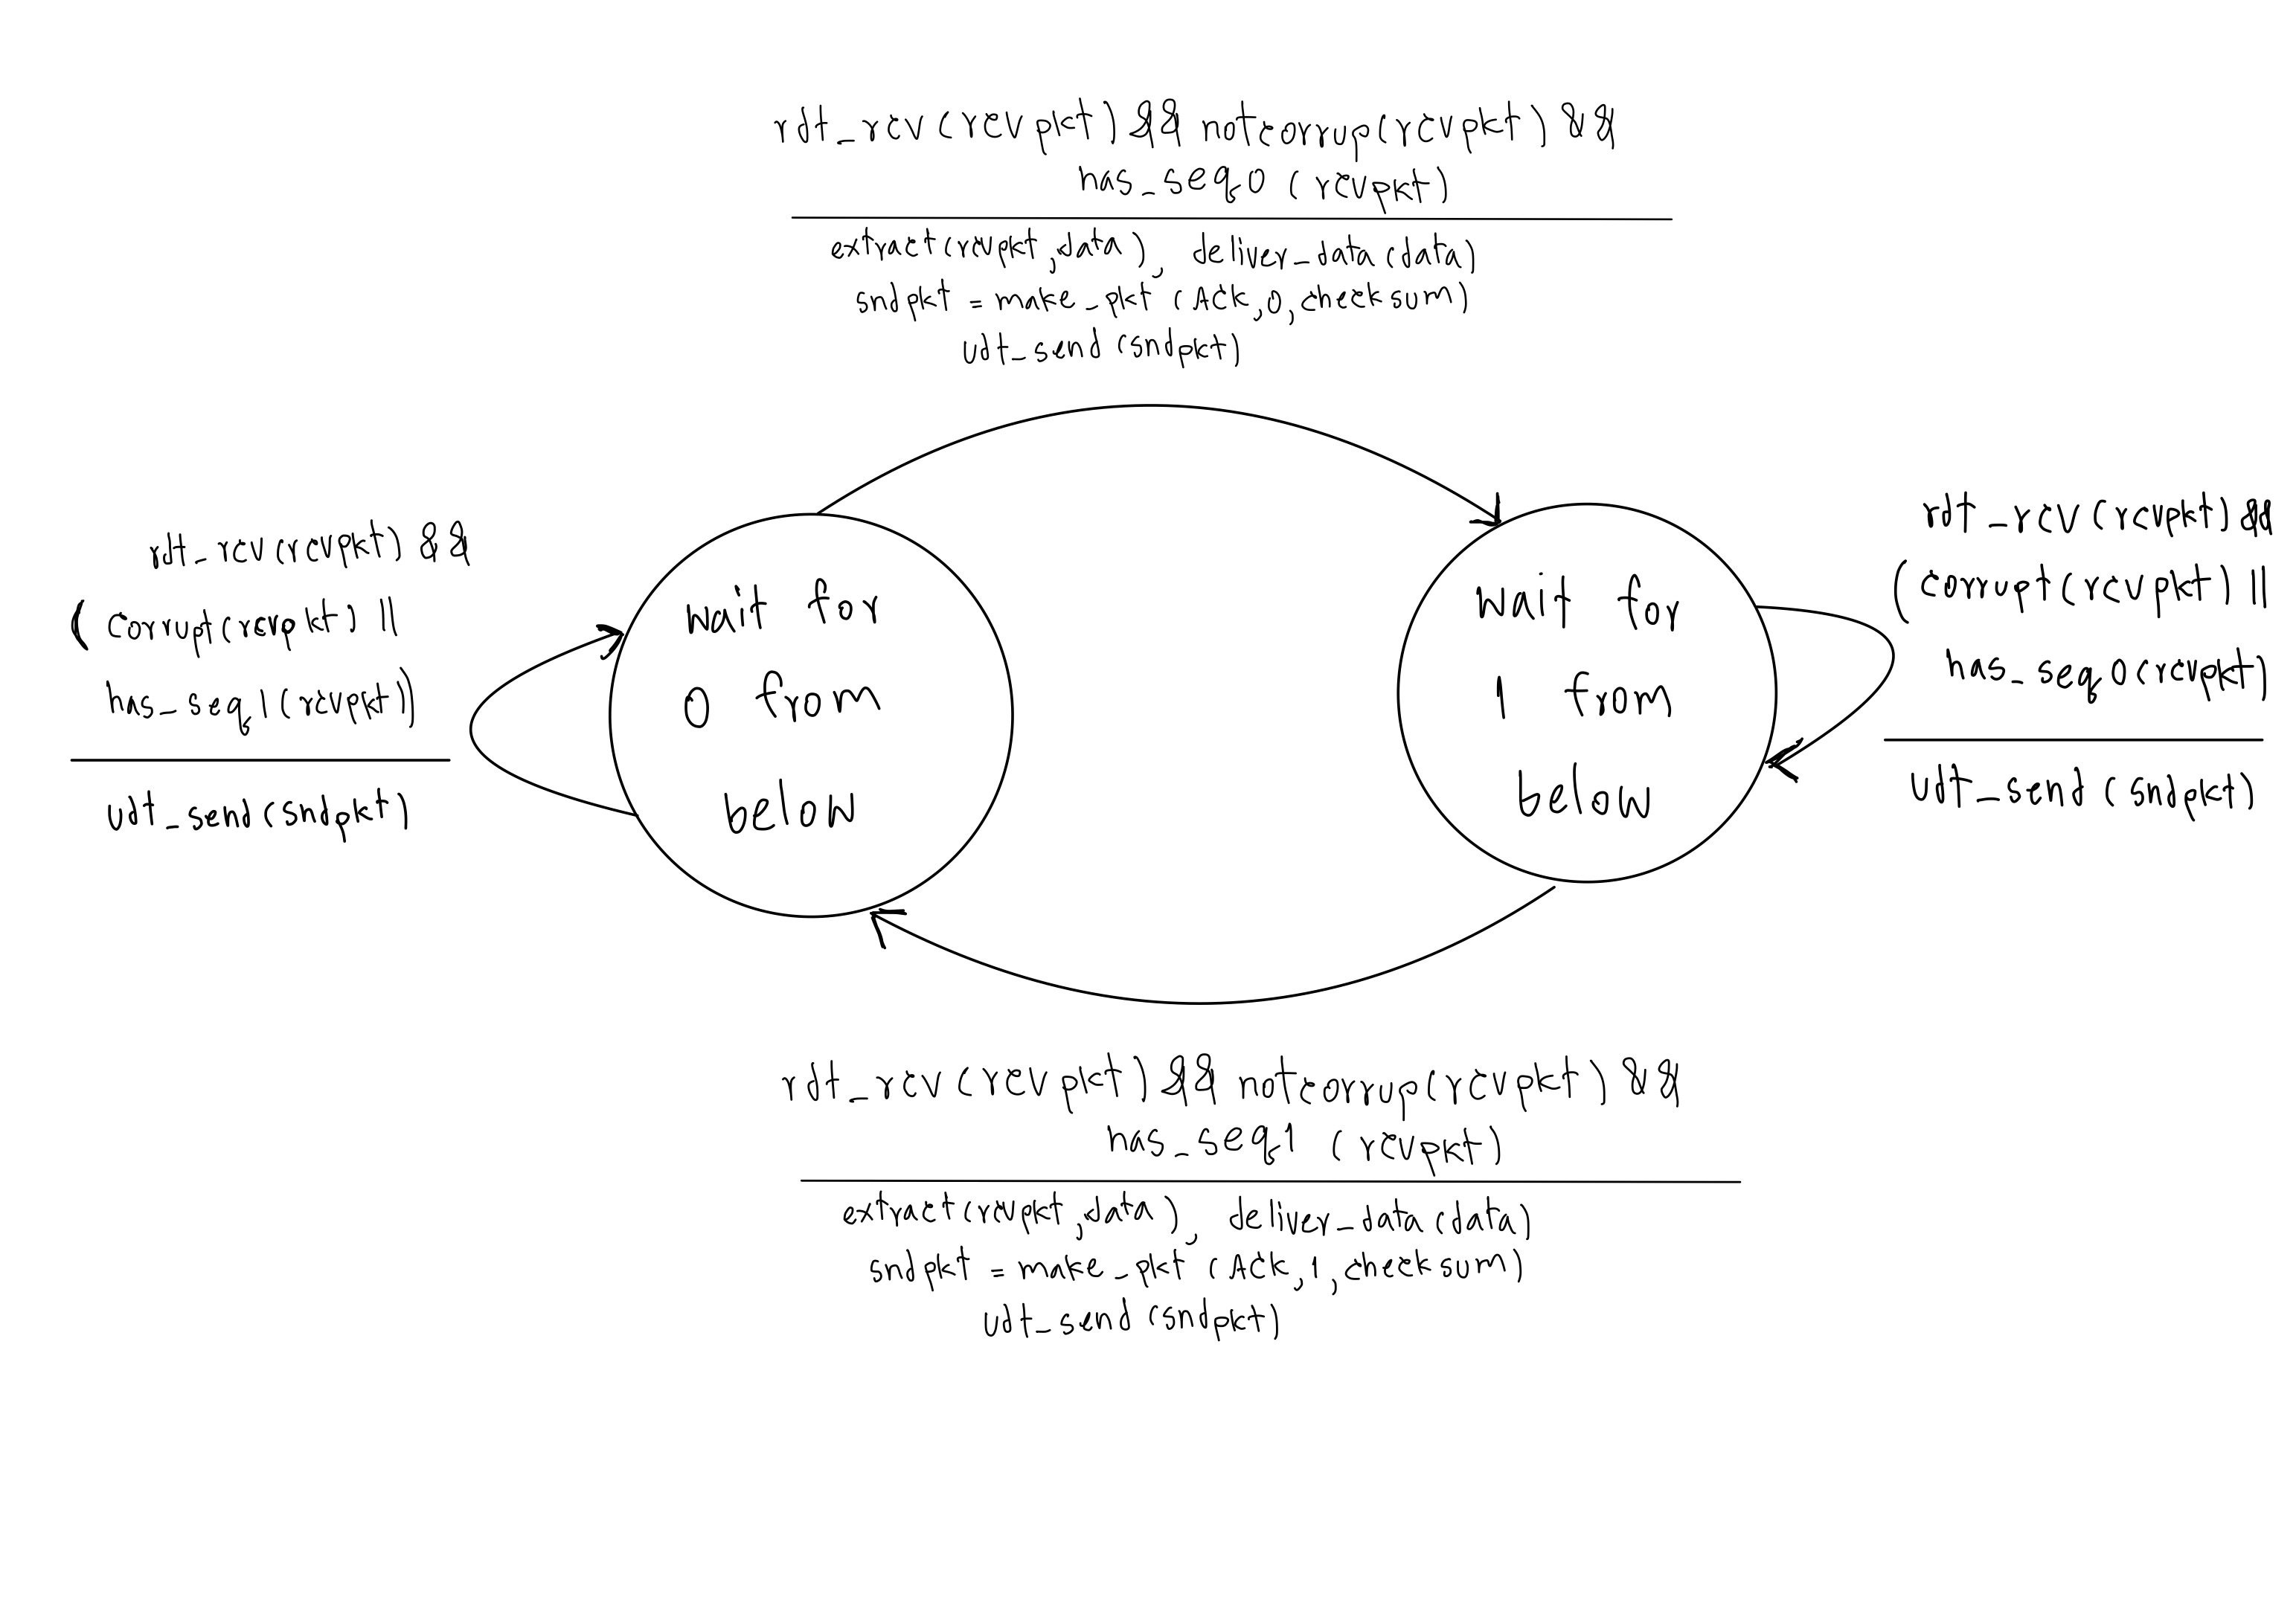 rdt_rcv (rcvpkt) && notcorrup(rcvpkt) &&
has_seq0 (rcvpkt)
extract(rcvpkt,data), deliver_data(data)
sndpkt = make_pkt (Ack,0,checksum)
udt_send (sndpkt)
rdt_rcv(rcvpkt) &&
(corrupt(rcvpkt) ||
has_seq1(rcvpkt))
udt_send(sndpkt)
wait for
0 from
below
wait for
1 from
below
rdt_rcv(rcvpkt) &&
(corrupt(rcvpkt) ||
has_seq0(rcvpkt)
udt_send (sndpkt)
rdt_rcv (rcvpkt) && notcorrup(rcvpkt) &&
has_seq1 (rcvpkt)
extract(rcvpkt,data), deliver_data(data)
sndpkt = make_pkt (Ack,1,checksum)
udt_send (sndpkt)